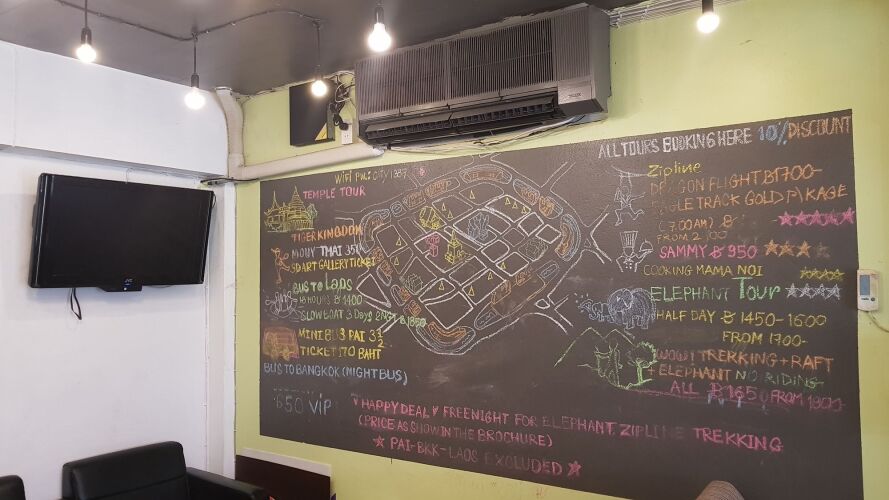 WiFi PW: CITY1387
TEMPLE TOUR
TIGER KINGDOM
MOUY THAI 35
5D ART GALLERY TICKET
BUS TO LAOS
18 HOURS ฿ 1400
SLOWBOAT 3 Days
MINI BUS PAI 3 1/2
TICKET 170 BAHT
BUS TO BANGKOK (NIGHT BUS)
650 VIP
ALL TOURS BOOKING HERE 10% DISCOUNT
Zipline
DRAGON FLIGHT ฿1700-
EAGLE TRACK GOLD PACKAGE
(7.00AM) ฿
FROM
SAMMY ฿ 950
COOKING MAMA NOI
ELEPHANT TOUR
HALF DAY ฿ 1450-1600
FROM 1700-
TREKKING + RAFT
+ ELEPHANT NO RIDING
ALL ฿ FROM 1800
♥ HAPPY DEAL ♥ FREE NIGHT FOR ELEPHANT, ZIPLINE TREKKING
(PRICE AS SHOW IN THE BROCHURE)
★ PAI-BKK-LAOS EXCLUDED ★
JVC